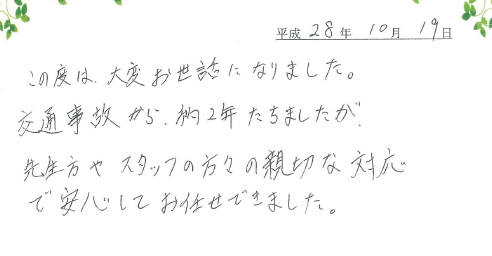 平成 28年 10月 19日
この度は、大変お世話になりました。
交通事故から、約2年たちましたが、
先生方やスタッフの方々の親切な対応
で安心してお任せできました。